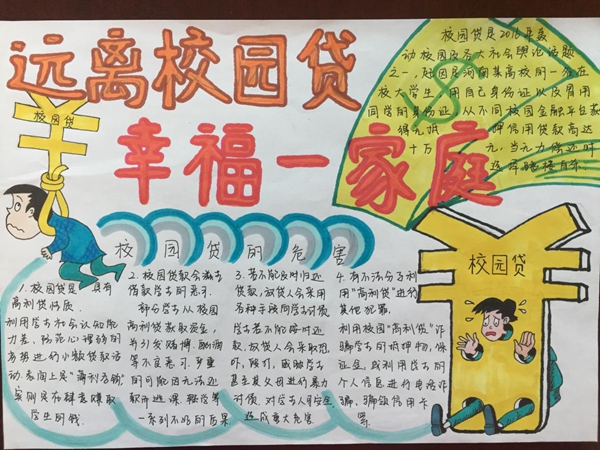 远离校园贷
幸福一家庭
校园贷
校园贷是2016年轰
动校园及各大社会舆论话题
之一,起因是河南某高校的一名在
校大学生,用自己身份证以及冒用
同学的身份证,从不同校园金融平台获
得无抵押信用贷款高达
十万元,当无力偿还时
选择跳楼自杀
校园贷的危害
1.校园贷是具有
高利贷性质
利用学生社会认知能
力差,防范心理弱的
劣势进行小额贷款活
动,表面上是"薄利多销"
实则是不择手段赚取
学生的钱
2.校园贷款会滋生
借款学生的恶习
部分学生从校园
高利贷获取资金,
并引发赌博、酗酒
等不良恶习,严重
的可能因无法还
款而逃课、辍学等
一系列不好的后果
3.若不能及时归还
贷款,放贷人会采用
各种手段向学生讨债
学生若不能按时还
款,放贷人会采取恐
吓,殴打,威胁学生
甚至其父母进行暴力
讨债,对学生人身安全
造成重大危害
4.有不法分子利
用"高利贷"进行
其他犯罪
利用校园"高利贷"诈
骗学生的抵押物,保
证金,或利用学生的
个人信息进行电话诈
骗,骗领信用卡
等
校园贷